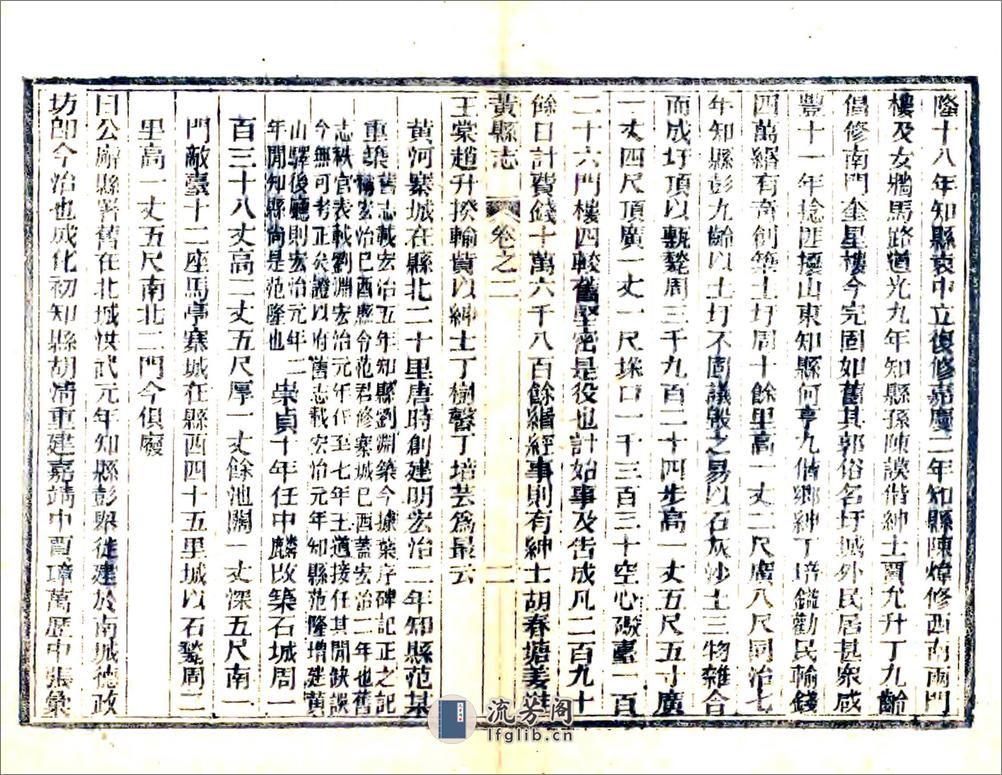 隆十八年知縣袁中立復修嘉慶二年知縣陳煒修西南兩門
樓及女牆馬路道光九年知縣孫陳謨偕紳士賈允升丁九齡
倡修南門奎星樓今完固如舊其郭俗名圩城外民居甚衆咸
豐十一年捻匪擾山東知縣何亨九偕鄉紳丁培鎰勸民輸錢
四萬緡有奇創築土圩周十餘里高一丈二尺廣八尺同治七
年知縣彭九齡以土圩不固議毀之易以石灰沙土三物雜合
而成圩頂以甎甃周三千九百二十四步高一丈五尺五寸廣
一丈四尺頂廣一丈一尺垜口一千三百三十空心礮臺一百
二十六門樓四較舊堅密是役也計始事及告成凡二百九十
餘日計費錢十萬六千八百餘緡經事則有紳士胡春塘姜
黃縣志 卷之二 二
王棠趙升揆輸貲以紳士丁樹馨丁培芸爲最云
黃河寨城在縣北二十里唐時創建明宏治二年知縣范某
重築舊志載宏治五年知縣劉淵築今據葉序碑記正之記
稱宏治己酉縣令范君修寨城己酉蓋宏治二年也舊
志秩官表載劉淵宏治元年任至七年王道接任其間缺誤
今無可考正矣證以府舊志載宏治元年知縣范隆增建黃
山驛後廳則宏治元年二
年間知縣尚是范隆也
崇貞十年任中麟改築石城周一
百三十八丈高二丈五尺厚一丈餘池闊一丈深五尺南一
門敵臺十二座馬亭寨城在縣西四十五里城以石甃周二
里高一丈五尺南北二門今俱廢
曰公廨縣署舊在北城洪武元年知縣彭舉徙建於南城德政
坊卽今治也成化初知縣胡濬重建嘉靖中賈璋萬歷中張彙
流芳阁
lfglib.cn